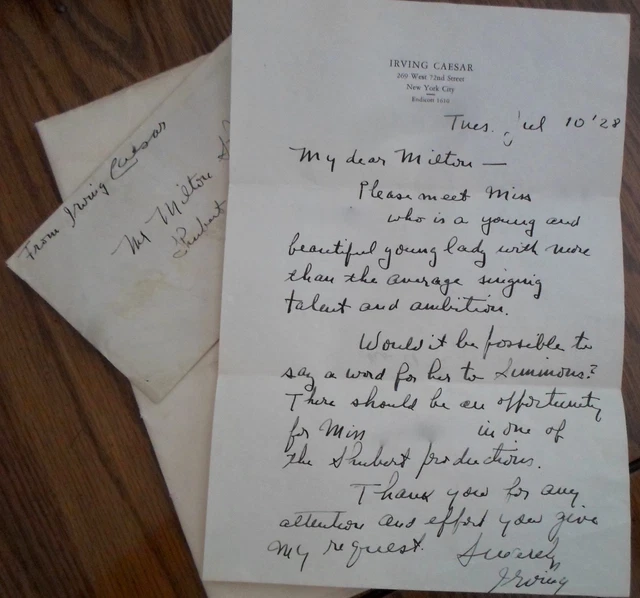 IRVING CAESAR
269 West 72nd Street
New York City
Endicott 1010
Tues. Jul 10 '28
My dear Milton —
Please meet Miss
who is a young and
beautiful young lady with more
than the average singing
talent and ambition.
Would it be possible to
say a word for her to Simmons?
There should be an opportunity
for Miss in one of
the Shubert productions.
Thank you for any
attention and effort you give
my request. Sincerely
Irving
From Irving Caesar
Mr Milton
Shubert